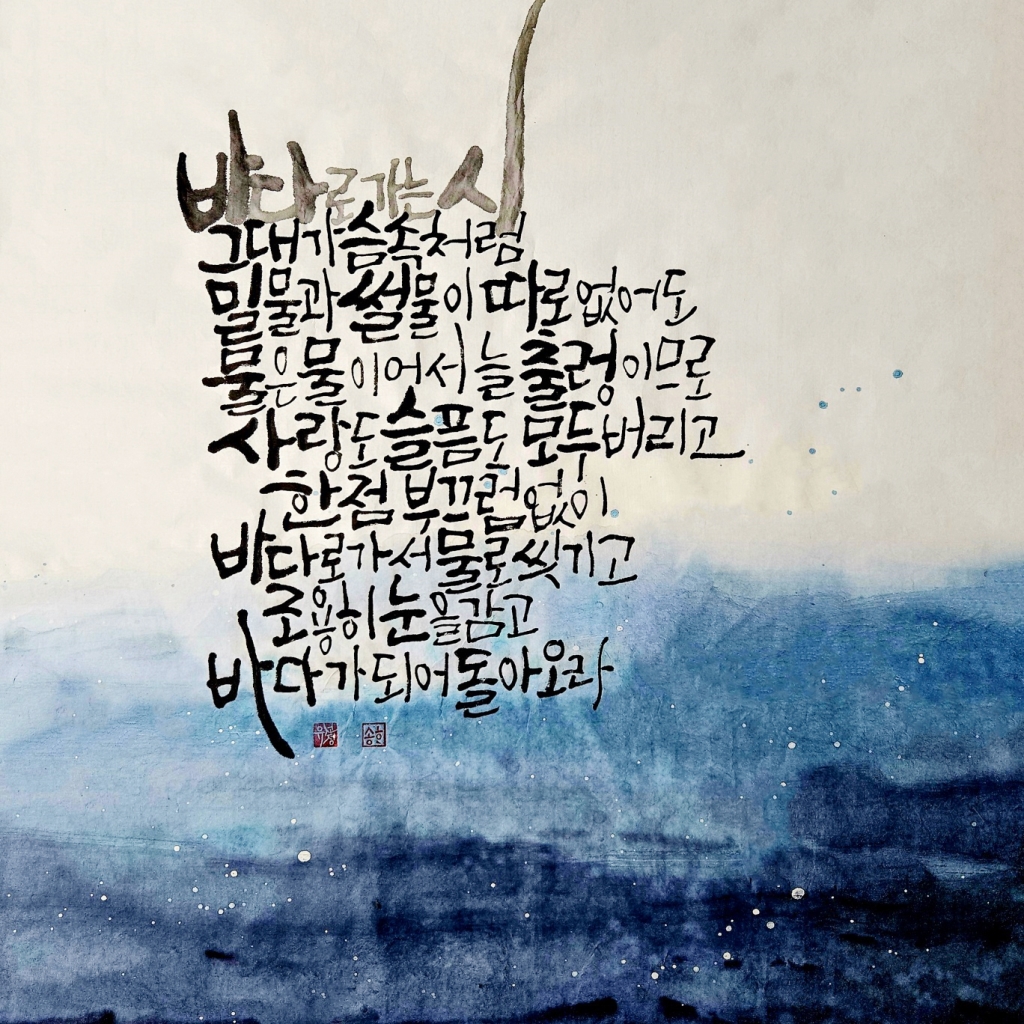 바다로 가는 시
그대 가슴 속처럼
밀물과 썰물이 따로 없어도
물은 물이어서 늘 출렁이므로
사랑도 슬픔도 모두 버리고
한 점 부끄럼 없이
바다로 가서 물로 씻기고
조용히 눈을 감고
바다가 되어 돌아오라